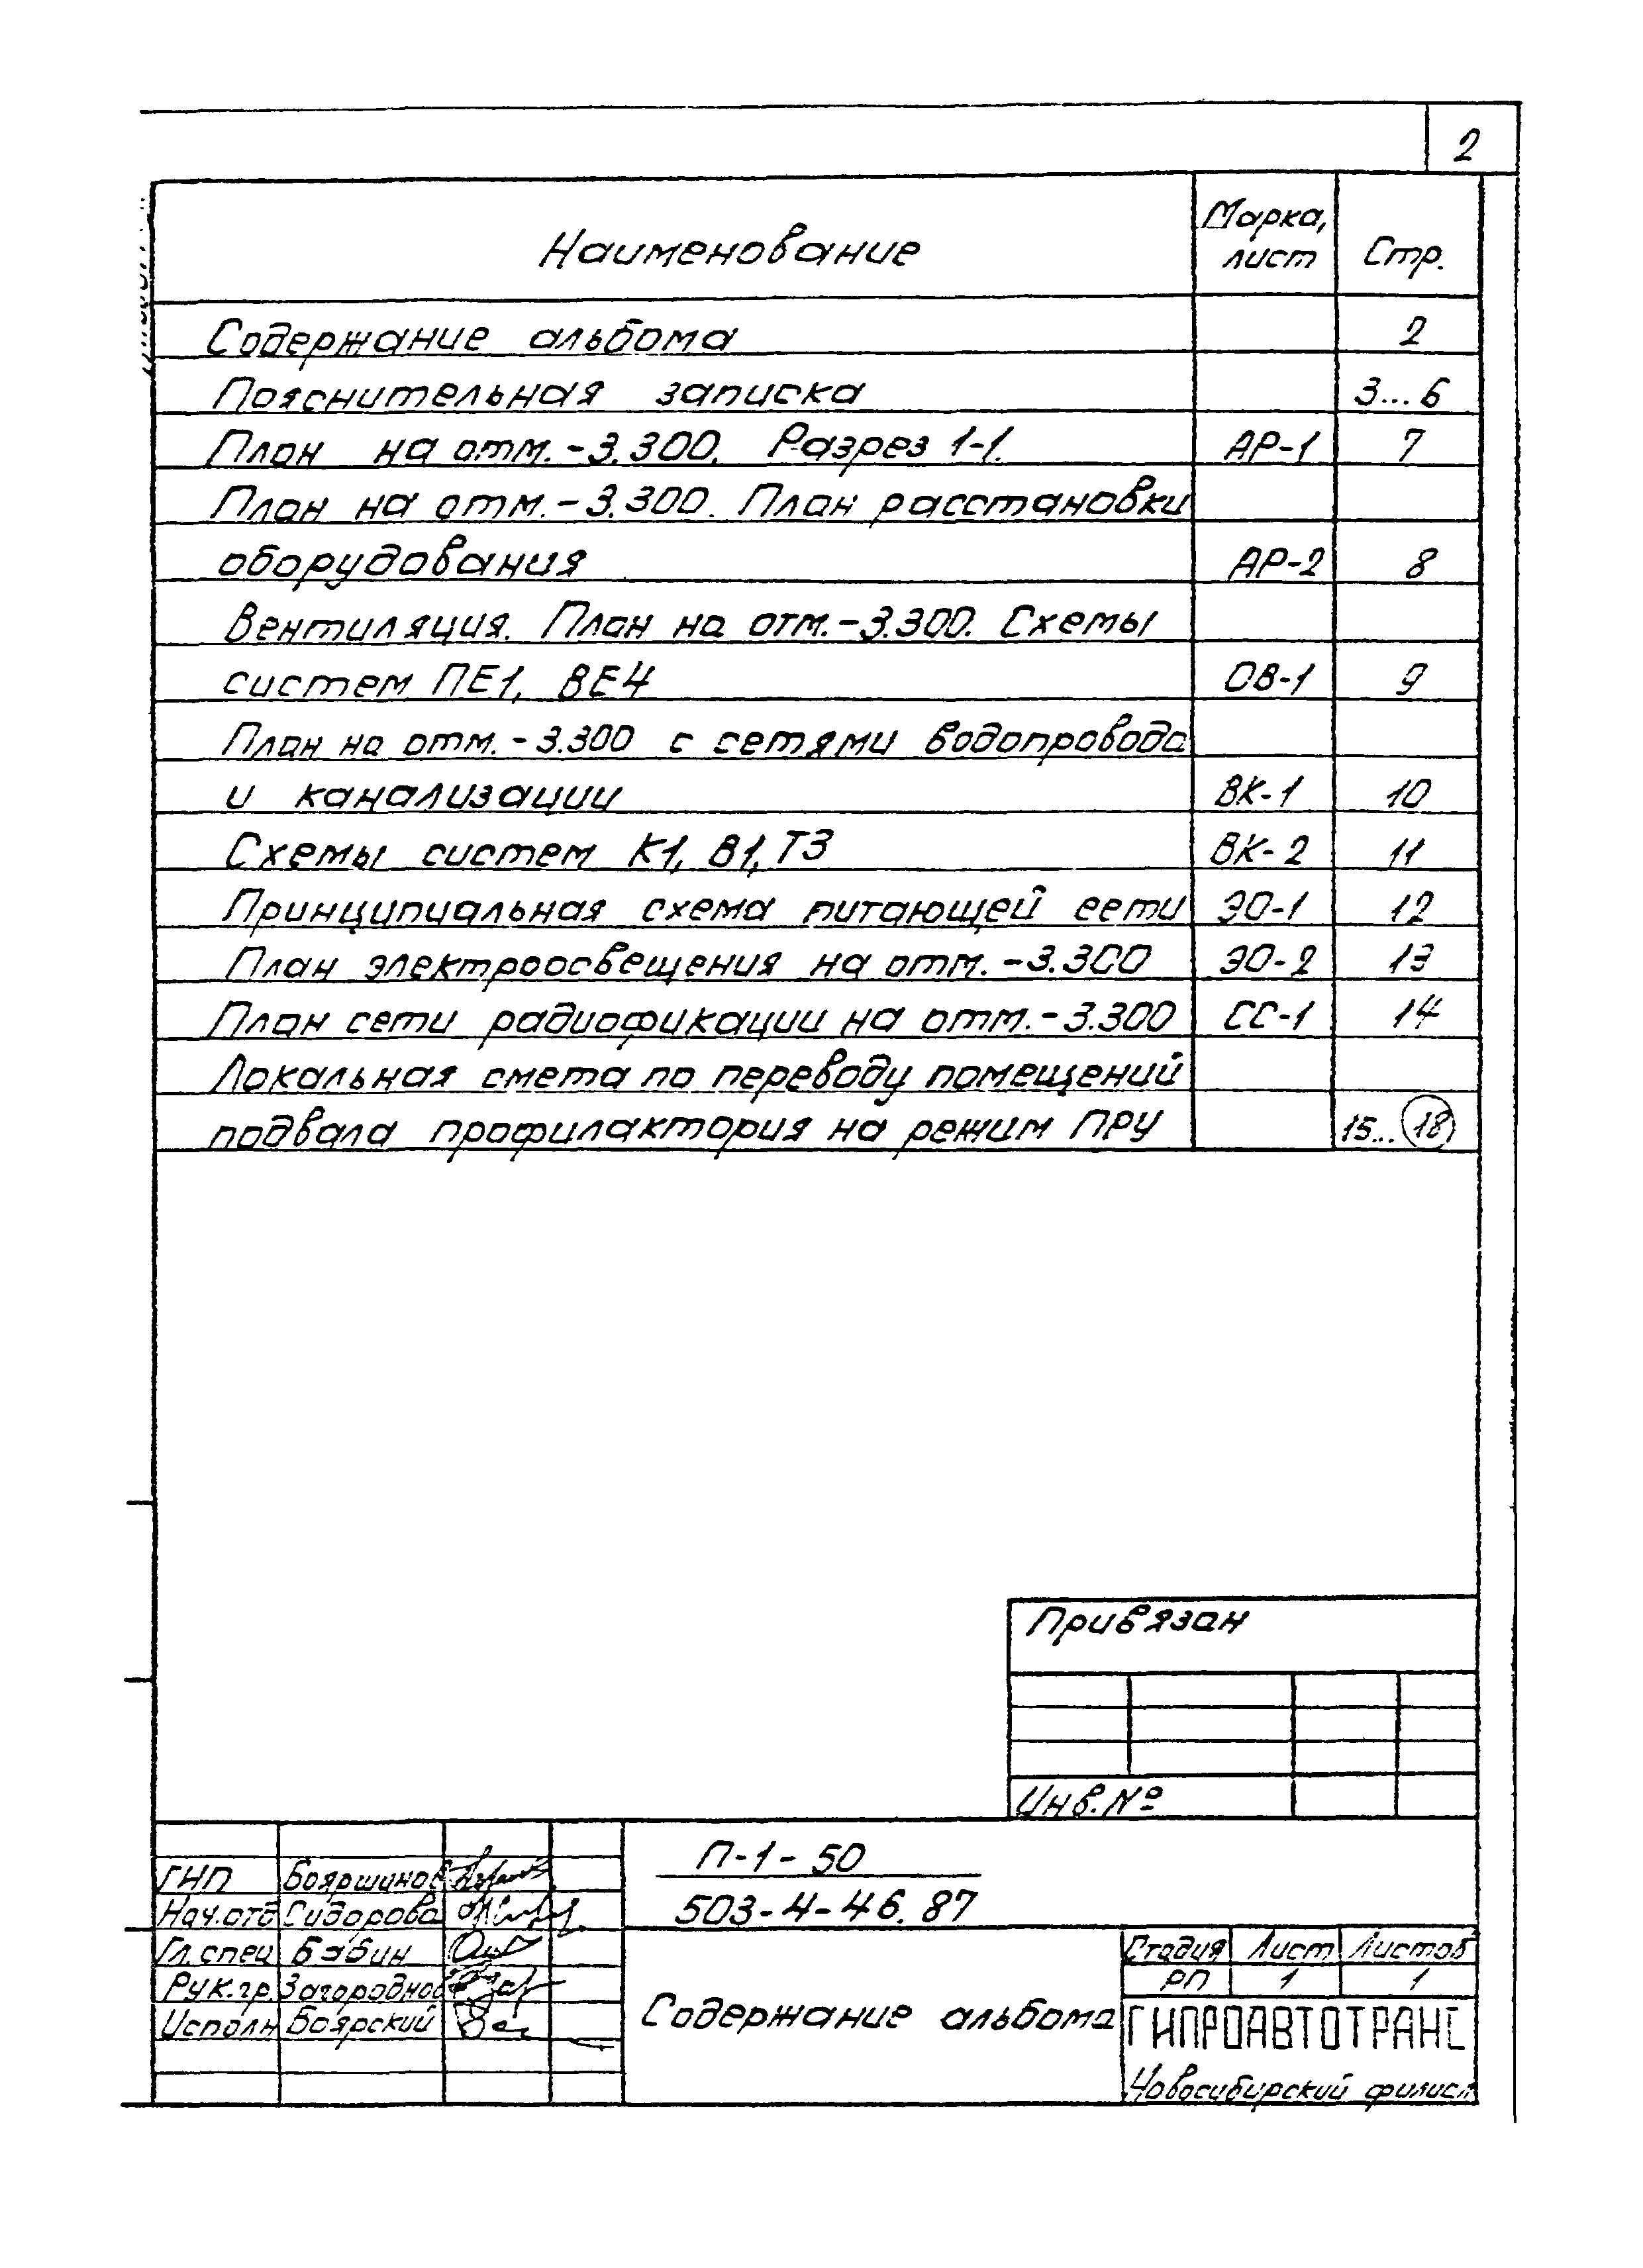 2
Наименование Марка, лист Стр.
Содержание альбома 2
Пояснительная записка 3...6
План на отм.-3.300. Разрез 1-1. АР-1 7
План на отм.-3.300. План расстановки
оборудования АР-2 8
Вентиляция. План на отм.-3.300. Схемы
систем ПЕ1, ВЕ4 ОВ-1 9
План на отм.-3.300 с сетями водопровода
и канализации ВК-1 10
Схемы систем К1, В1, Т3 ВК-2 11
Принципиальная схема питающей сети ЭО-1 12
План электроосвещения на отм.-3.300 ЭО-2 13
План сети радиофикации на отм.-3.300 СС-1 14
Локальная смета по переводу помещений
подвала профилактория на режим ПРУ 15...18
Привязан
Инв.№
П-1-50
503-4-46.87
ГИП Бояршинов
Нач.отд Сидорова
Гл.спец Бабин
Рук.гр. Загороднов
Исполн Боярский
Содержание альбома
Стадия Лист Листов
РП 1 1
ГИПРОАВТОТРАНС
Новосибирский филиал